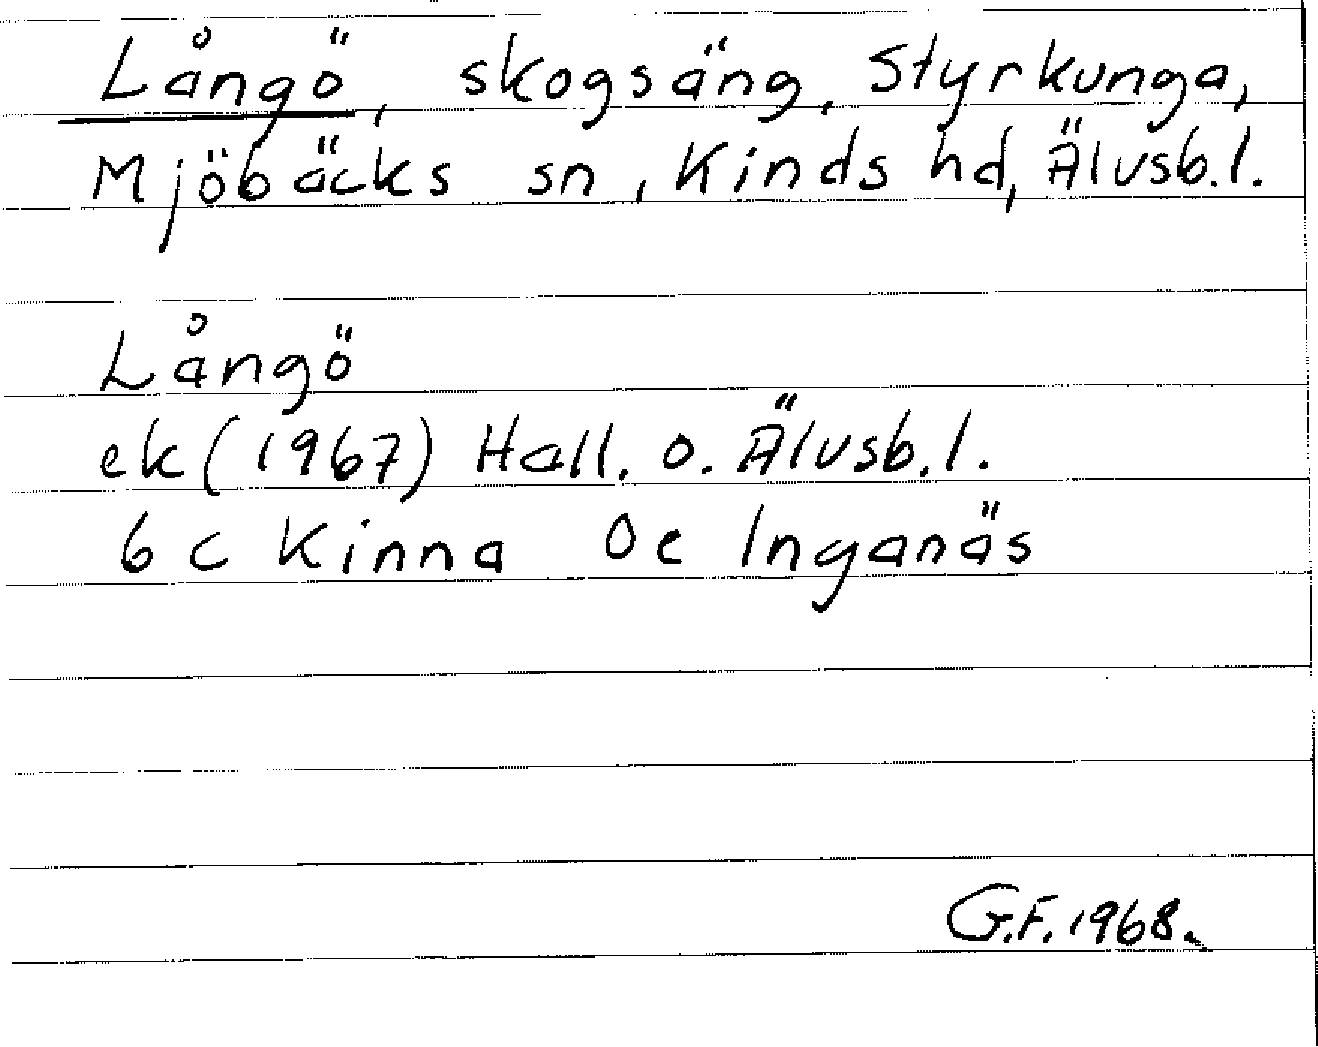 Långö, skogsäng, Styrkunga,
Mjöbäcks sn, Kinds hd, Älvsb.l.
Långö
ek (1967) Hall. o. Älvsb.l.
6 c Kinna 0e Inganäs
G.F. 1968.